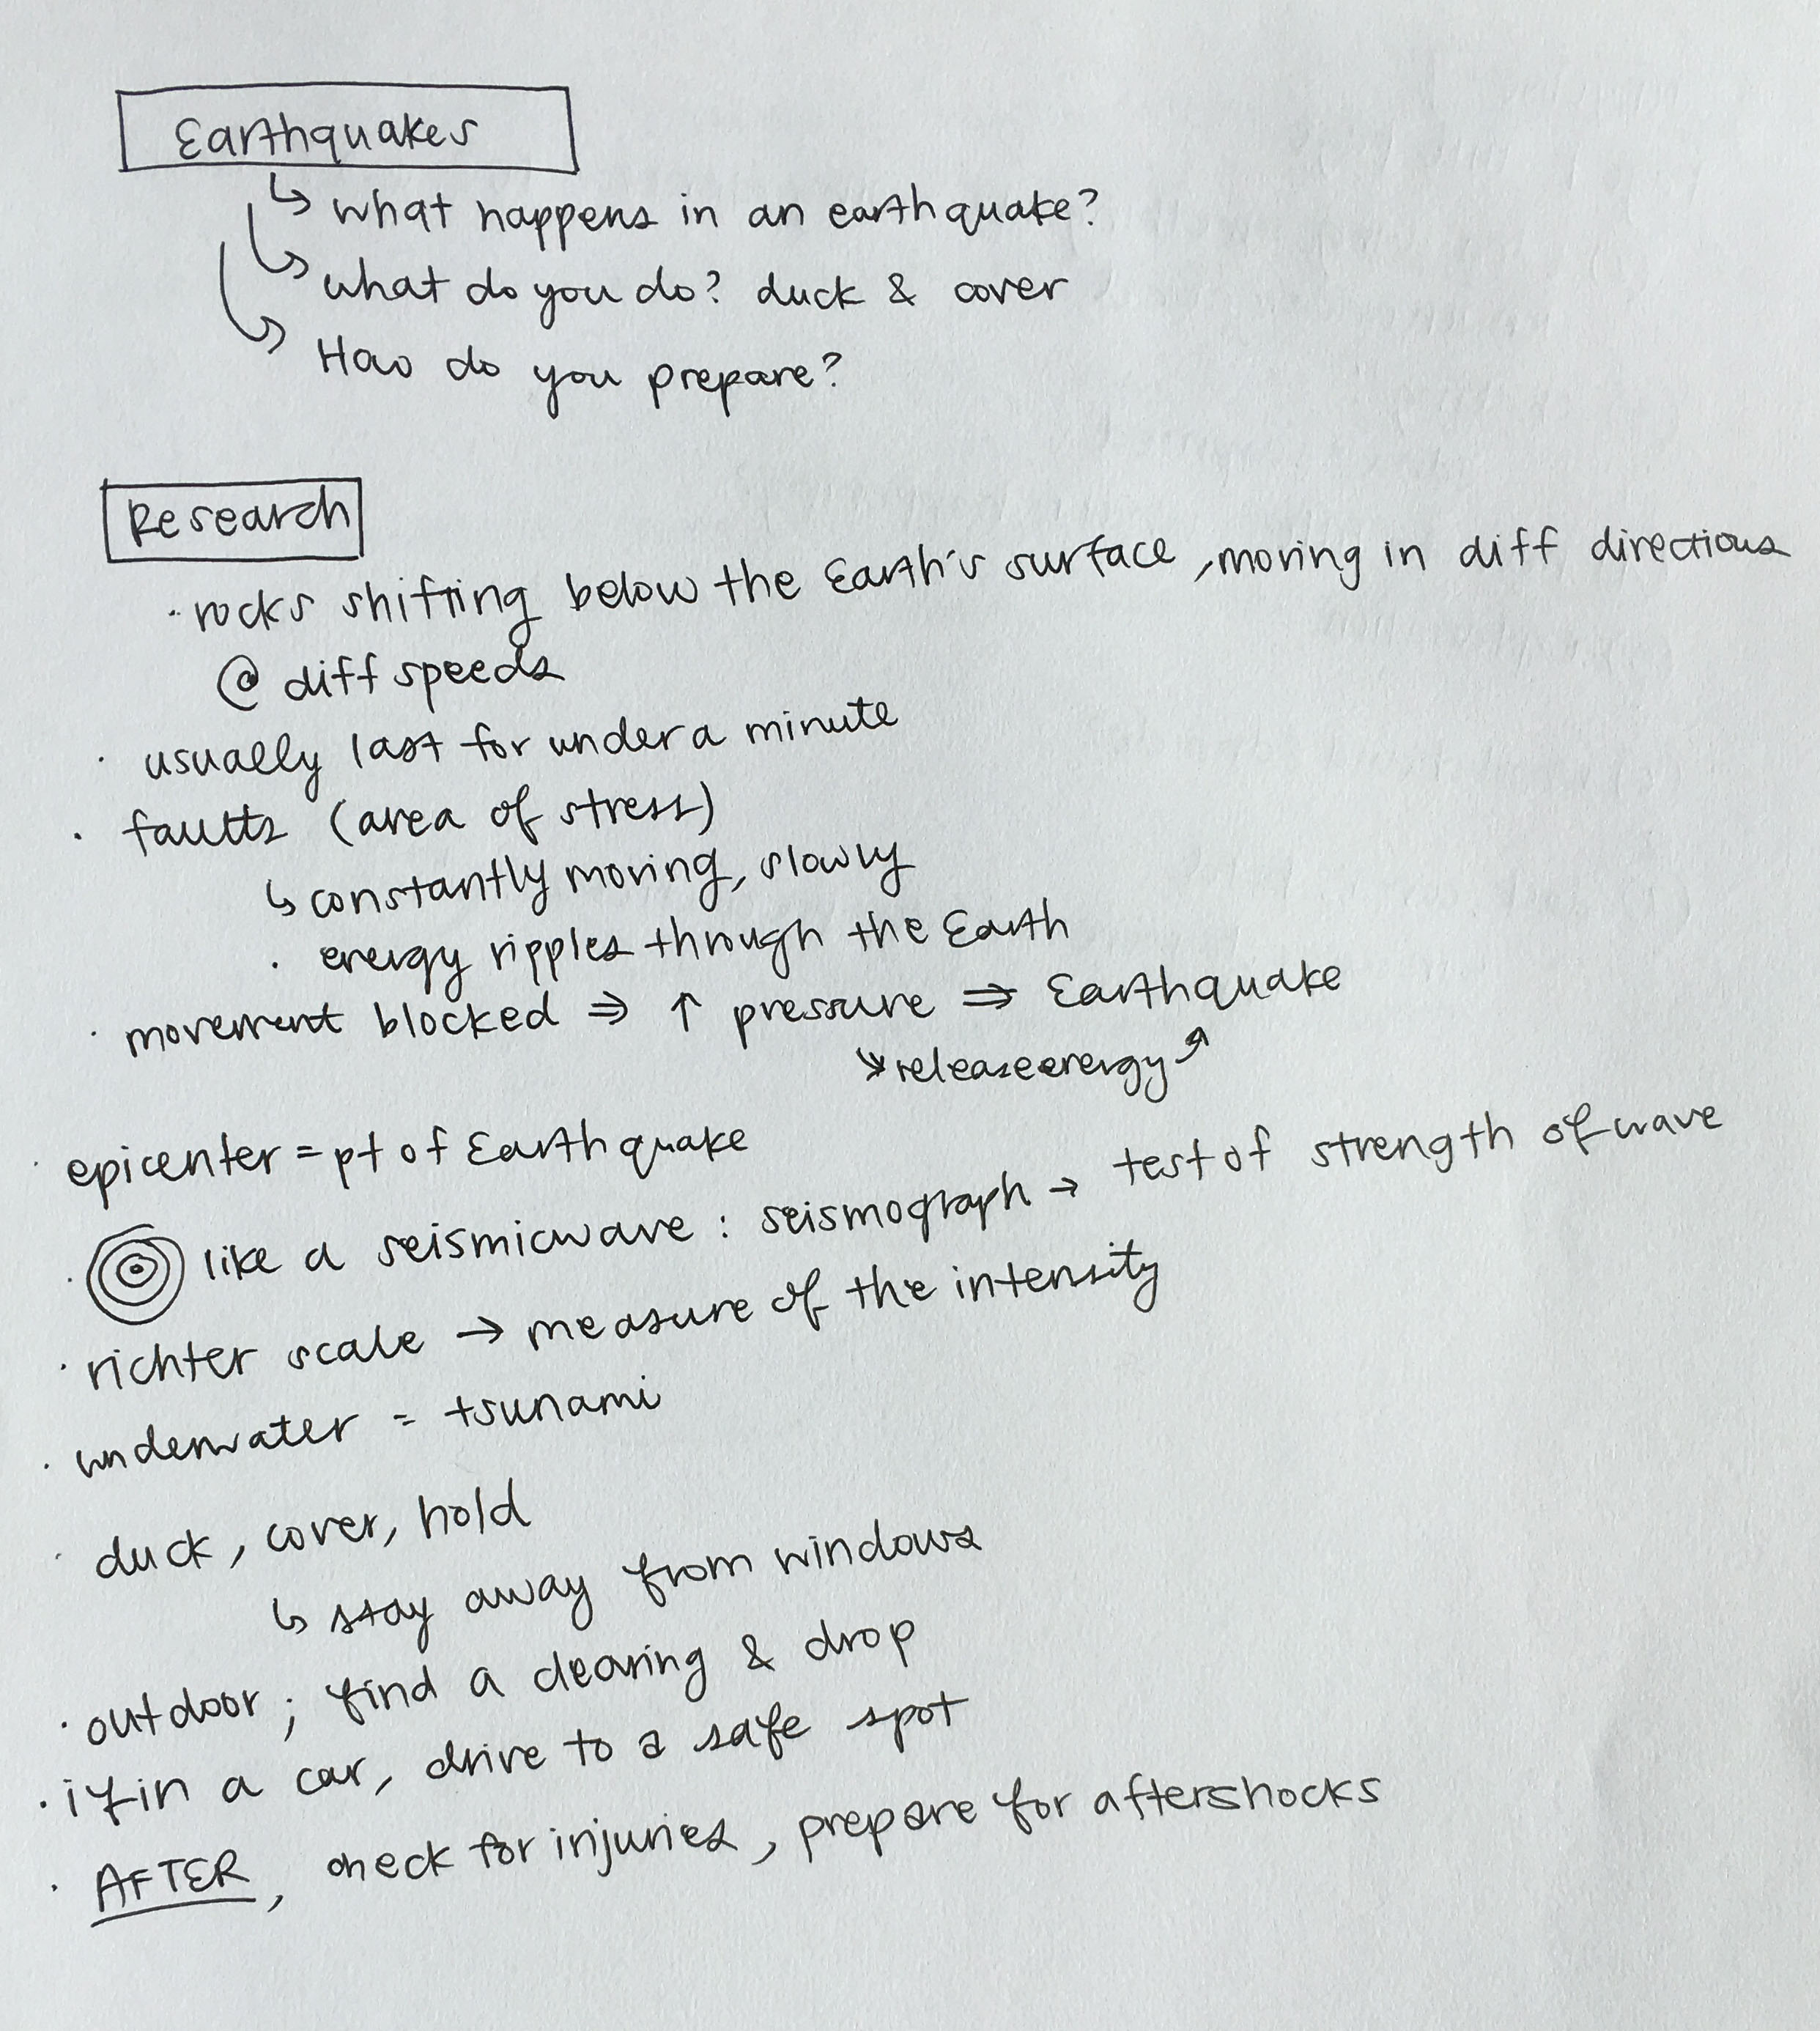 Earthquakes
↳ what happens in an earthquake?
↳ what do you do? duck & cover
↳ How do you prepare?
Research
· rocks shifting below the Earth's surface, moving in diff directions
@ diff speeds
· usually last for under a minute
· faults (area of stress)
↳ constantly moving, slowly
· energy ripples through the Earth
· movement blocked ⇒ ↑ pressure ⇒ Earthquake
↘ release energy ↗
· epicenter = pt of Earthquake
· like a seismic wave : seismograph → test of strength of wave
· richter scale → measure of the intensity
· underwater = tsunami
· duck, cover, hold
↳ stay away from windows
· outdoor; find a clearing & drop
· if in a car, drive to a safe spot
· AFTER, check for injuries, prepare for aftershocks